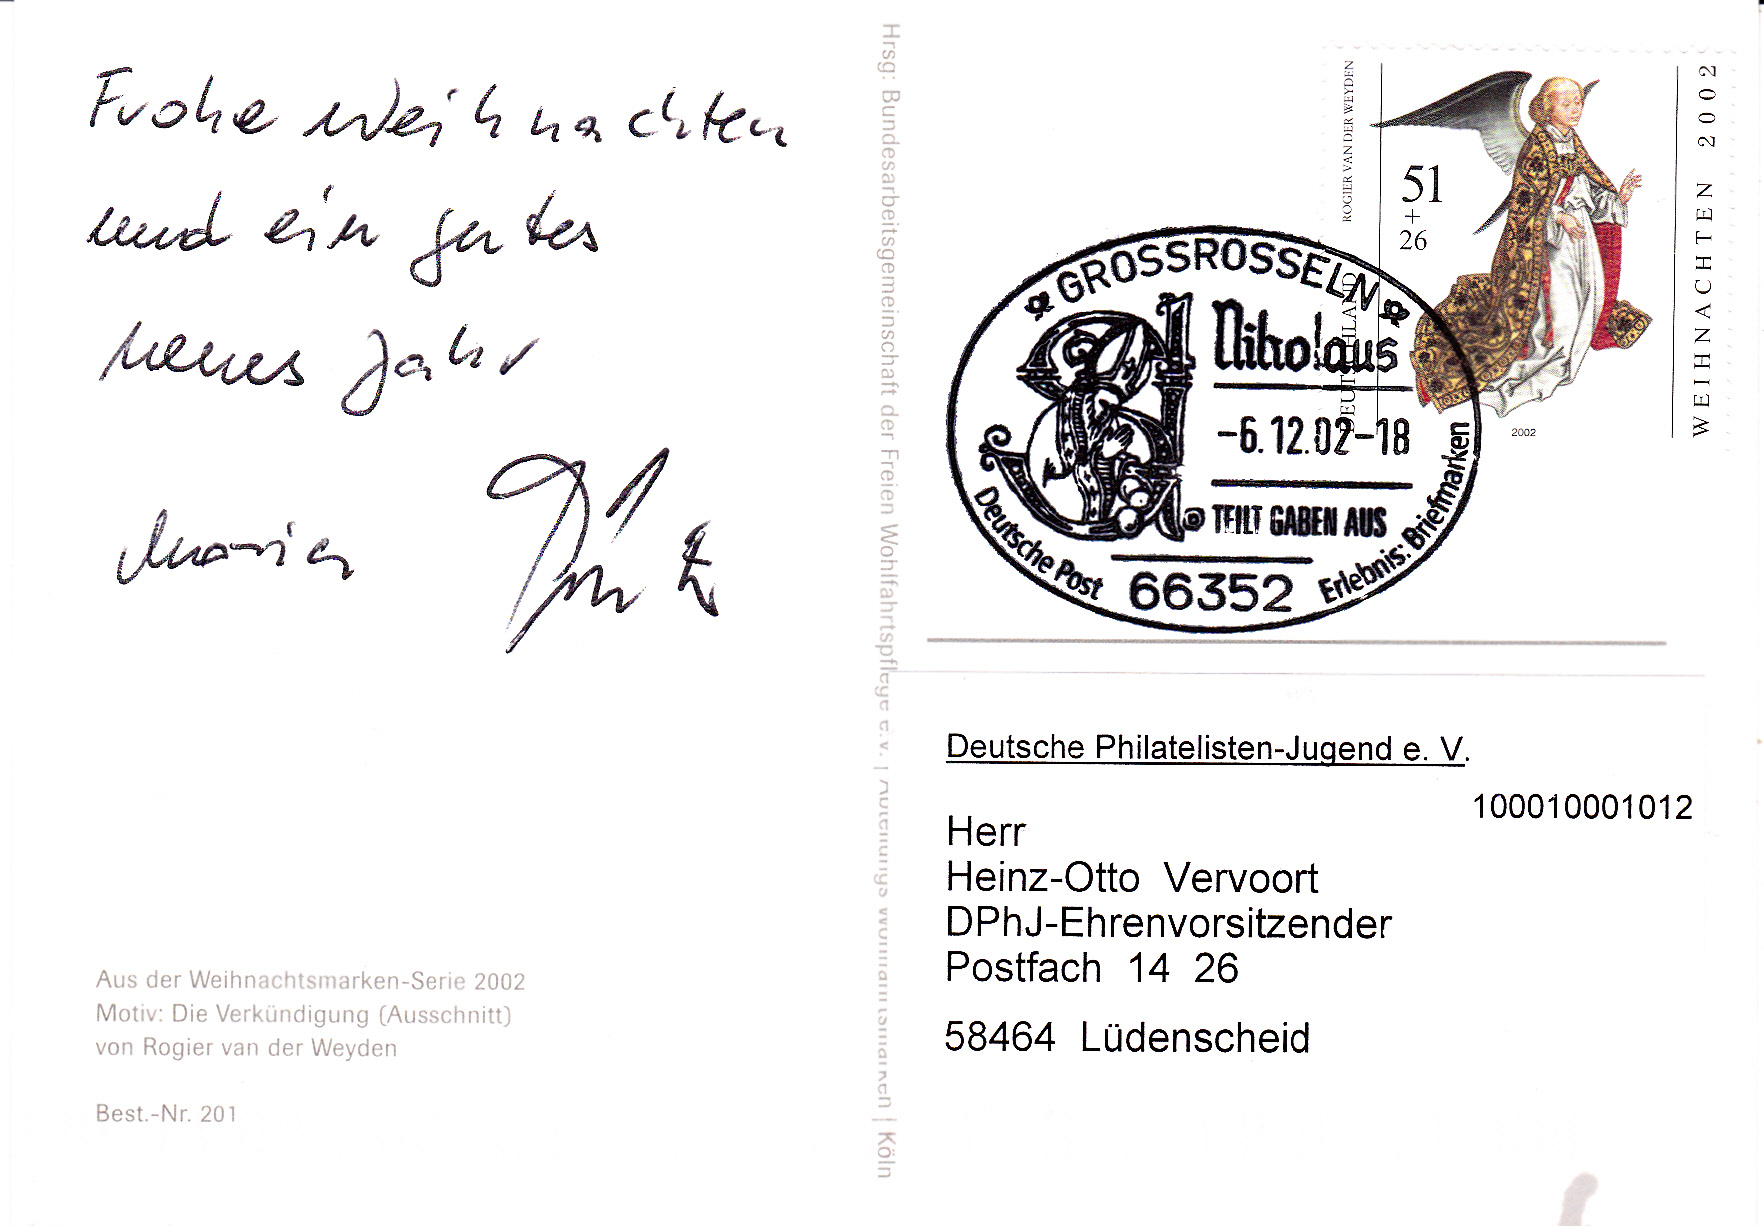 Frohe Weihnachten
und ein gutes
neues Jahr
Aus der Weihnachtsmarken-Serie 2002
Motiv: Die Verkündigung (Ausschnitt)
von Rogier van der Weyden
Best.-Nr. 201
Hrsg: Bundesarbeitsgemeinschaft der Freien Wohlfahrtspflege e.V. | Abteilung Wohlfahrtsmarken | Köln
ROGIER VAN DER WEYDEN
DEUTSCHLAND
51
+
26
WEIHNACHTEN 2002
2002
GROSSROSSELN
Nikolaus
-6.12.02-18
TEILT GABEN AUS
Deutsche Post
66352
Erlebnis: Briefmarken
Deutsche Philatelisten-Jugend e. V.
100010001012
Herr
Heinz-Otto Vervoort
DPhJ-Ehrenvorsitzender
Postfach 14 26
58464 Lüdenscheid